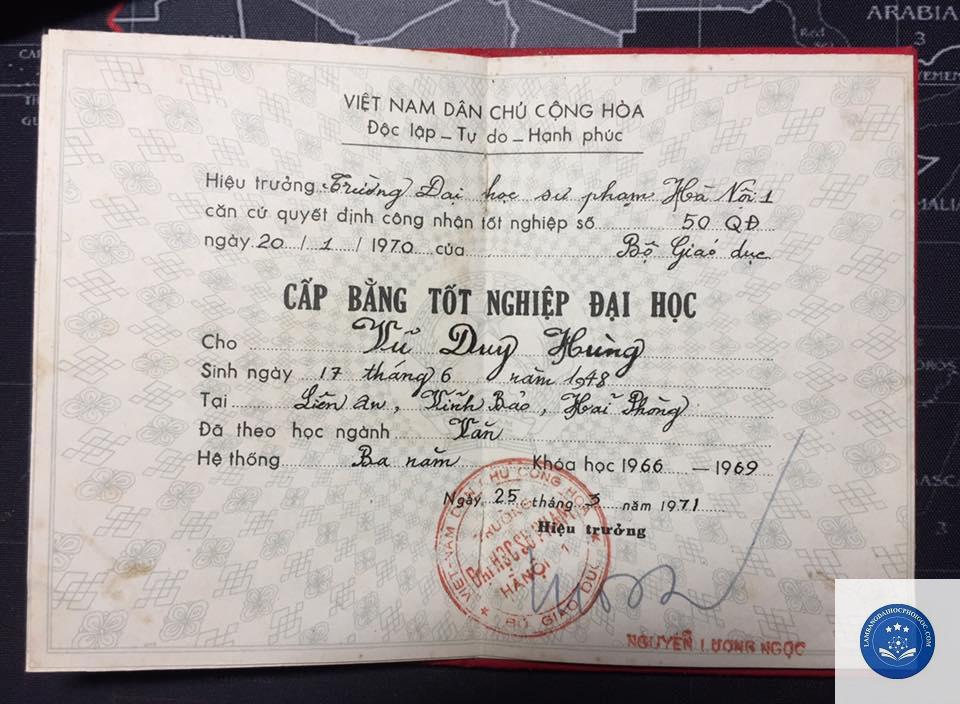 ARABIA
3
Red
YEMEN
VIỆT NAM DÂN CHỦ CỘNG HÒA
Độc lập - Tự do - Hạnh phúc
Hiệu trưởng Trường Đại học sư phạm Hà Nội 1
căn cứ quyết định công nhận tốt nghiệp số 50 QĐ
ngày 20 / 1 / 1970 của Bộ Giáo dục
CẤP BẰNG TỐT NGHIỆP ĐẠI HỌC
Cho Vũ Duy Hùng
Sinh ngày 17 tháng 6 năm 1948
Tại Liên An, Vĩnh Bảo, Hải Phòng
Đã theo học ngành Văn
Hệ thống Ba năm Khóa học 1966 - 1969
Ngày 25 tháng 3 năm 1971
Hiệu trưởng
VIỆT-NAM DÂN CHỦ CỘNG HÒA
TRƯỜNG
ĐẠI HỌC SƯ PHẠM
HÀ NỘI 1
BỘ GIÁO DỤC
NGUYỄN LƯƠNG NGỌC
LAMBANGDAIHOCPHOIGOC.COM